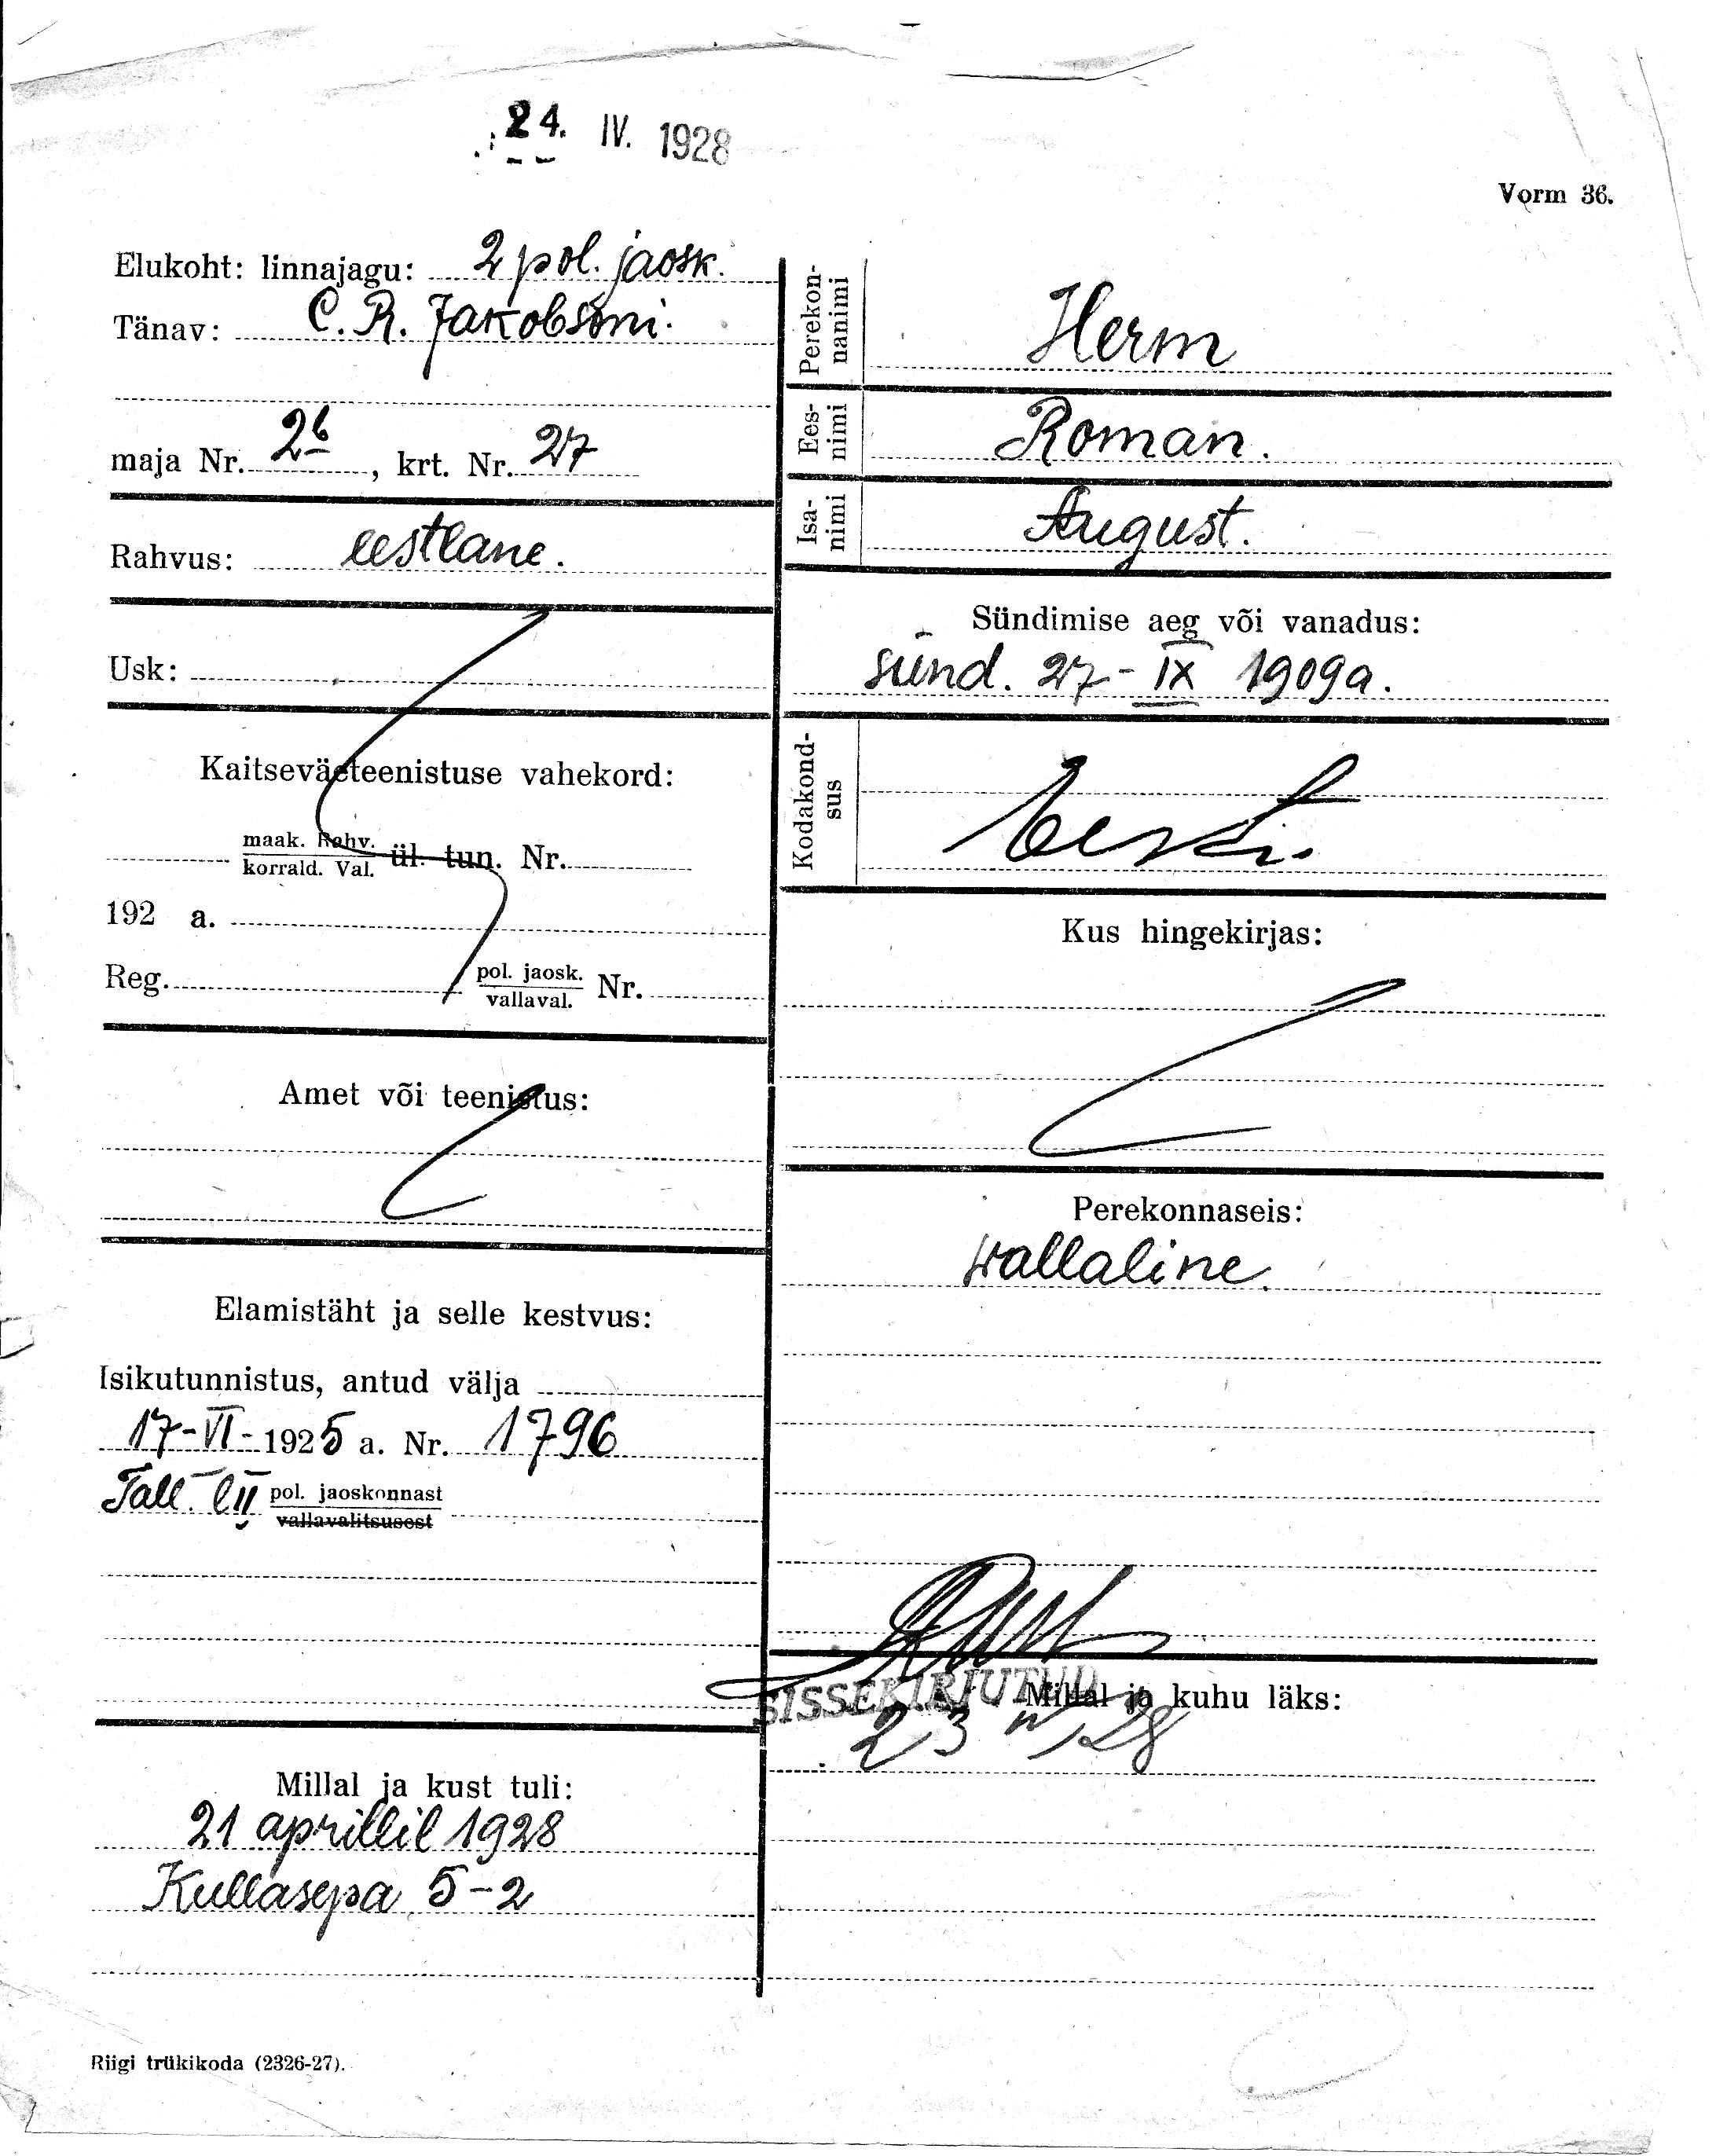 24. IV. 1928
Vorm 36.
Elukoht: linnajagu: 2 pol. jaosk.
Tänav: C. R. Jakobsoni.
maja Nr. 26, krt. Nr. 27
Rahvus: eestlane.
Usk:
Kaitseväeteenistuse vahekord:
maak. Rahv.
korrald. Val. ül. tun. Nr.
192 a.
Reg. pol. jaosk. Nr.
vallaval.
Amet või teenistus:
Elamistäht ja selle kestvus:
Isikutunnistus, antud välja
17-VI-1925 a. Nr. 1796
Tall. II pol. jaoskonnast
vallavalitsusest
Millal ja kust tuli:
21 aprillil 1928
Kullasepa 5-2
Perekon-
nanimi
Herm
Ees-
nimi
Roman.
Isa-
nimi
August.
Sündimise aeg või vanadus:
sünd. 27-IX 1909a.
Kodakond-
sus
Eesti.
Kus hingekirjas:
Perekonnaseis:
wallaline.
SISSEKIRJUTUD
Millal ja kuhu läks:
23 IV 28
Riigi trükikoda (2326-27).